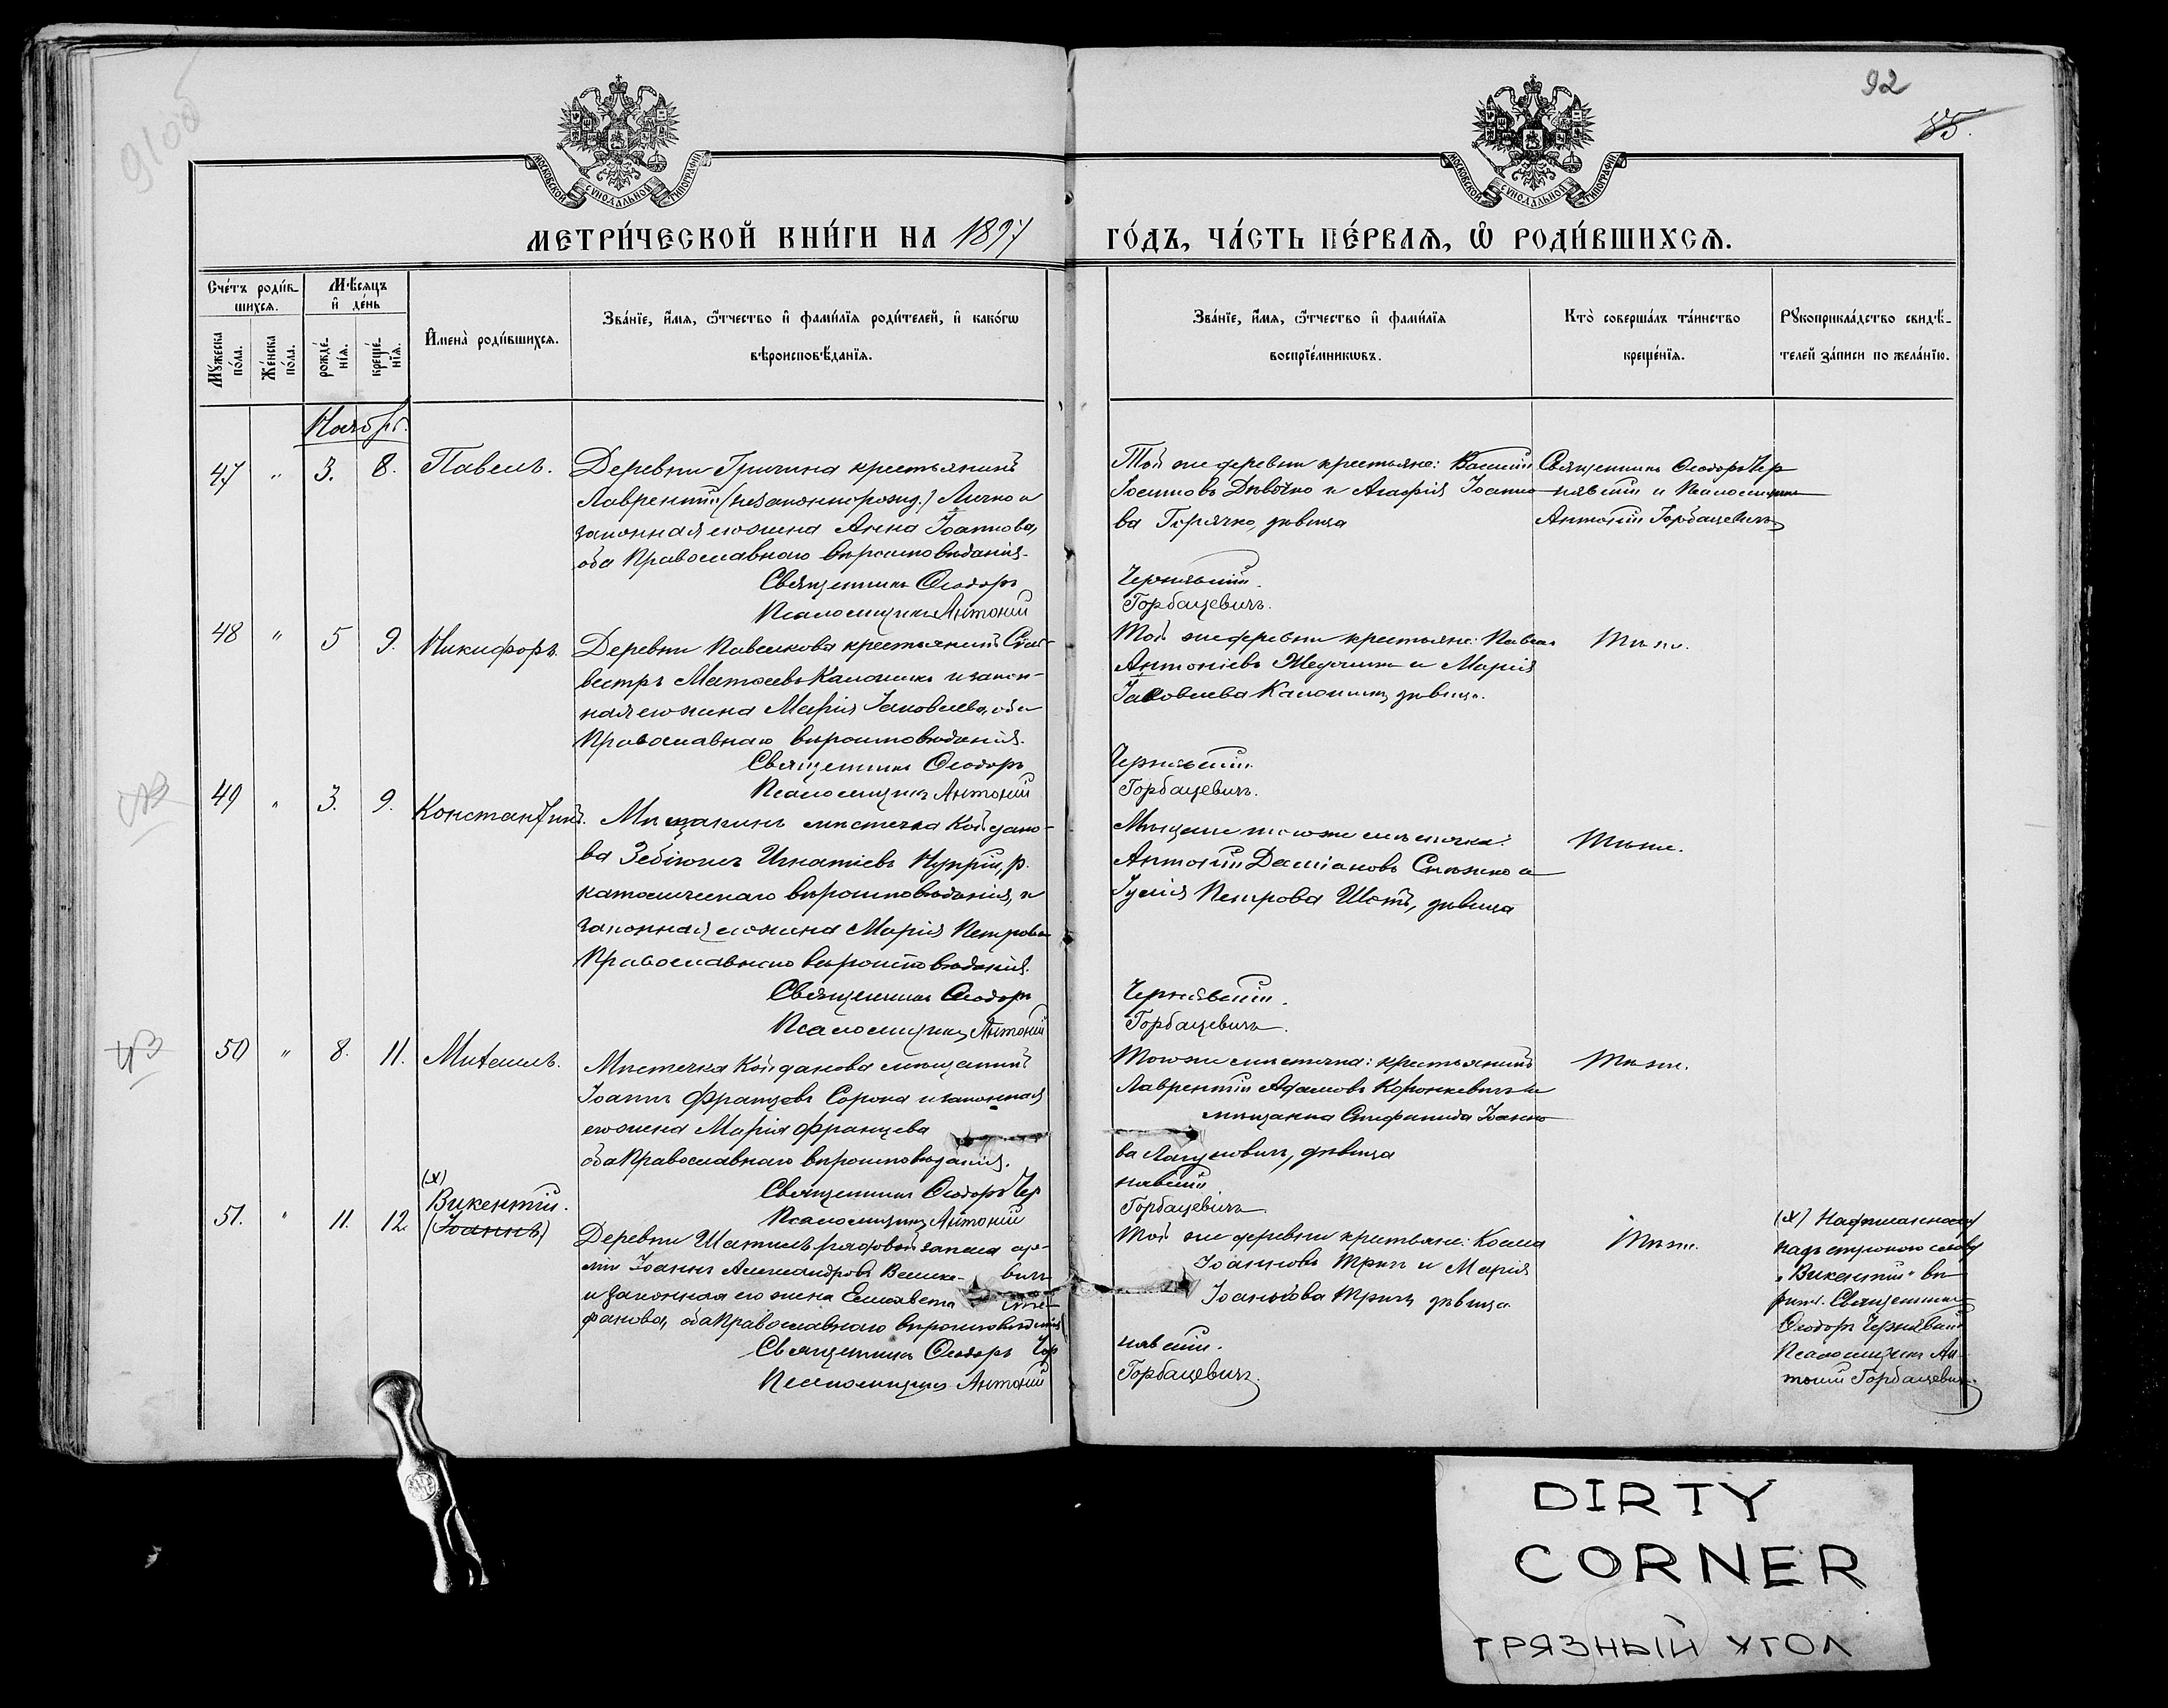 92
85.
91об
МОСКОВСКОЙ СѴНОДАЛЬНОЙ ТИПОГРАФІИ
МОСКОВСКОЙ СѴНОДАЛЬНОЙ ТИПОГРАФІИ
МЕТРИ́ЧЕСКОЙ КНИ́ГИ НА 1897
ГО́ДЪ, ЧА́СТЬ ПЕ́РВАЯ, Ѽ РОДИ́ВШИХСЯ.
Сче́тъ роди́вшихся.
Мꙋ́жеска по́ла.
Же́нска по́ла.
Мѣ́сяцъ и҆ де́нь
рожде́нїя.
креще́нїя.
И҆мена̀ роди́вшихся.
Зва́нїе, и҆́мя, ѻ҆́тчество и҆ фами́лїя роди́телей, и҆ како́гѡ
вѣроисповѣ́данїя.
Зва́нїе, и҆́мя, ѻ҆́тчество и҆ фами́лїя
воспрїе́мникѡвъ.
Кто̀ соверша́лъ та́инство
креще́нїя.
Рꙋкоприкла́дство свидѣ́-
телей за́писи по жела́нїю.
Ноябрь.
47 " 3. 8. Павелъ.
Деревни Гричина крестьянинъ
Лаврентій (незаконнорожд.) Личко и
законная его жена Анна Іоаннова,
оба Православнаго вѣроисповѣданія.
Священникъ Ѳеодоръ
Псаломщикъ Антоній
Той же деревни крестьяне: Василій
Іосифовъ Дѣвочко и Агафія Іоанно
ва Горячко, дѣвица
Чернявскій.
Горбацевичъ.
Священникъ Ѳеодоръ Чер
нявскій и Псаломщикъ
Антоній Горбацевичъ
48 " 5 9. Никифоръ.
Деревни Павелкова крестьянинъ Силь-
вестръ Матѳеевъ Калошикъ и закон-
ная его жена Марія Іаковлева, оба
Православнаго вѣроисповѣданія.
Священникъ Ѳеодоръ
Псаломщикъ Антоній
Той же деревни крестьяне: Павелъ
Антоніевъ и Марія
Іаковлева Калошикъ, дѣвица.
Чернявскій.
Горбацевичъ.
Тѣже.
49 " 3. 9. Константинъ.
Мѣщанинъ мѣстечка Койдано-
ва Игнатіевъ Нупрій, р.
католическаго вѣроисповѣданія, и
законная его жена Марія Петрова
Православнаго вѣроисповѣданія.
Священникъ Ѳеодоръ
Псаломщикъ Антоній
Мѣщане тогоже мѣстечка:
Антоній Даміановъ Снѣжко и
Іулія Петрова Шотъ, дѣвица
Чернявскій.
Горбацевичъ.
Тѣже.
50 " 8. 11. Михаилъ.
Мѣстечка Койданова мѣщанинъ
Іоаннъ Францевъ Сорока и законная
его жена Марія Францева
оба Православнаго вѣроисповѣданія.
Священникъ Ѳеодоръ Чер
Псаломщикъ Антоній
Тогоже мѣстечка: крестьянинъ
Лаврентій Адамовъ Коронкевичъ и
мѣщанка Стефанида Іоанно
ва Лацуковичъ, дѣвица
нявскій
Горбацевичъ.
Тѣже.
51. " 11. 12
(х)
Викентій.
(Іоаннъ)
Деревни Шатилъ рядовой запаса ар-
міи Іоаннъ Александровъ Велике- вичъ
и законная его жена Елисавета Сте-
фанова, оба Православнаго вѣроисповѣданія
Священникъ Ѳеодоръ Чер
Псаломщикъ Антоній
Той же деревни крестьяне: Косма
Іоанновъ Тричъ и Марія
Іоаннова Тричъ, дѣвица
нявскій.
Горбацевичъ.
Тѣже.
(х) Надписанному
надъ строкою слову
"Викентій" вѣ
рить. Священникъ
Ѳеодоръ Чернявскій
Псаломщикъ Ан-
тоній Горбацевичъ.
DIRTY
CORNER
ГРЯЗНЫЙ УГОЛ